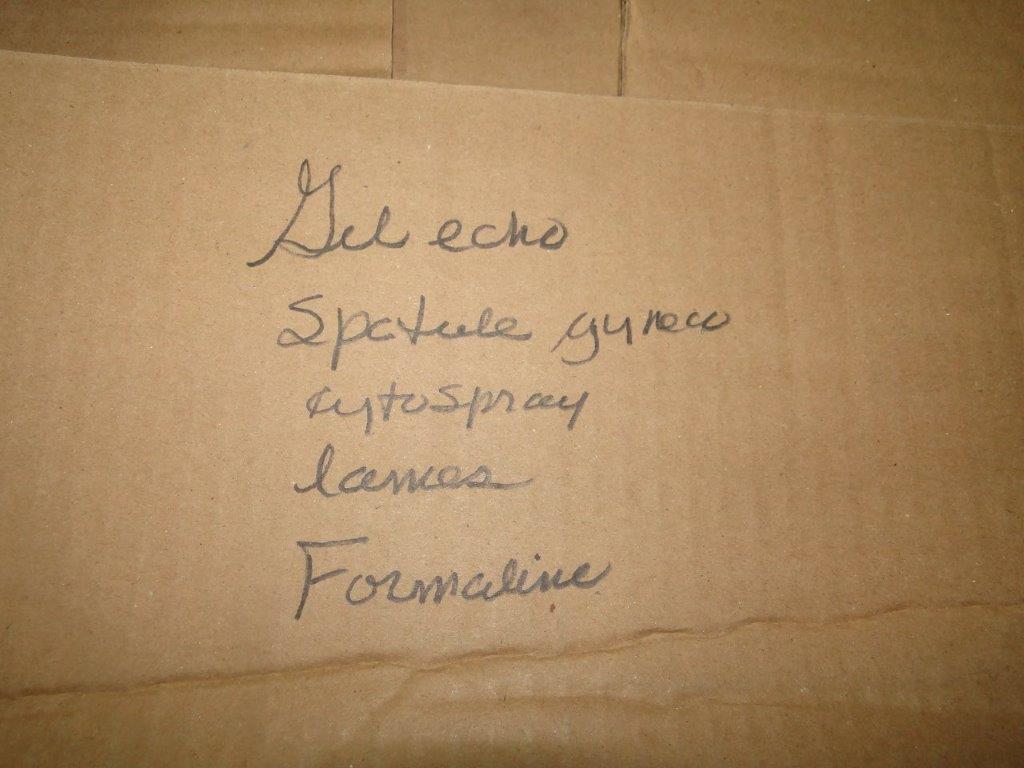 Gel echo
Spatule gyneco
cytospray
lames
Formaline